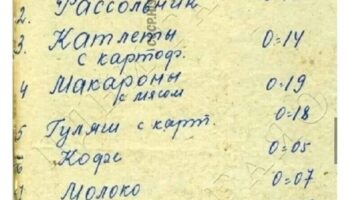 2. Рассольник
3. Катлеты
с картоф. 0=14
4 Макароны
с мясом 0=19
5 Гуляш с карт. 0=18
6 Кофе 0=05
7 Молоко 0=07